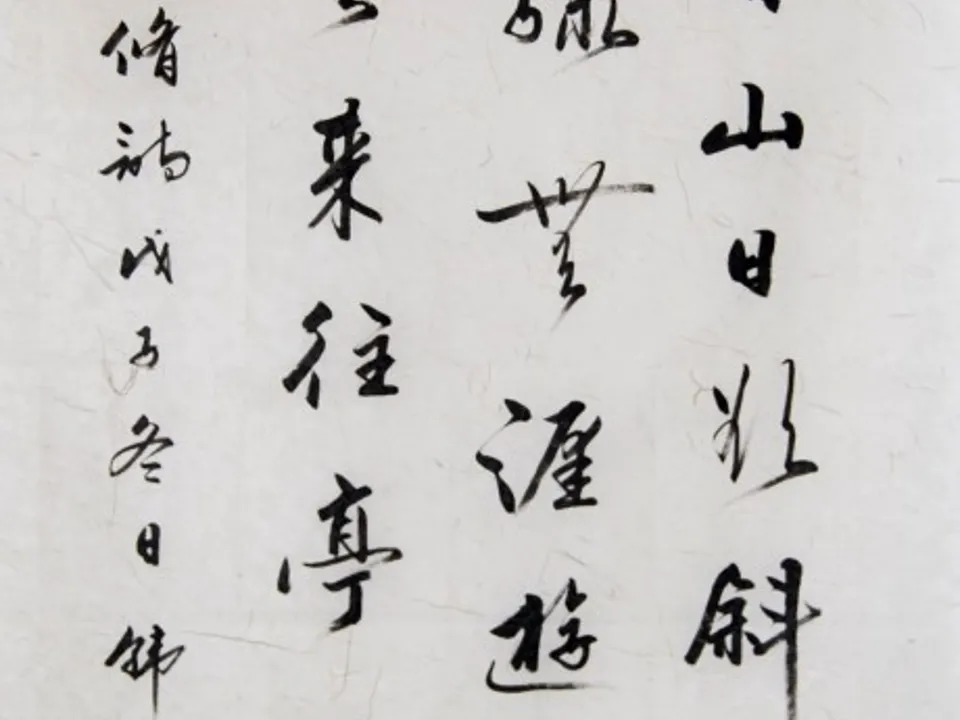 山日欲斜
無涯遊
来往亭
脩詩戊子冬日